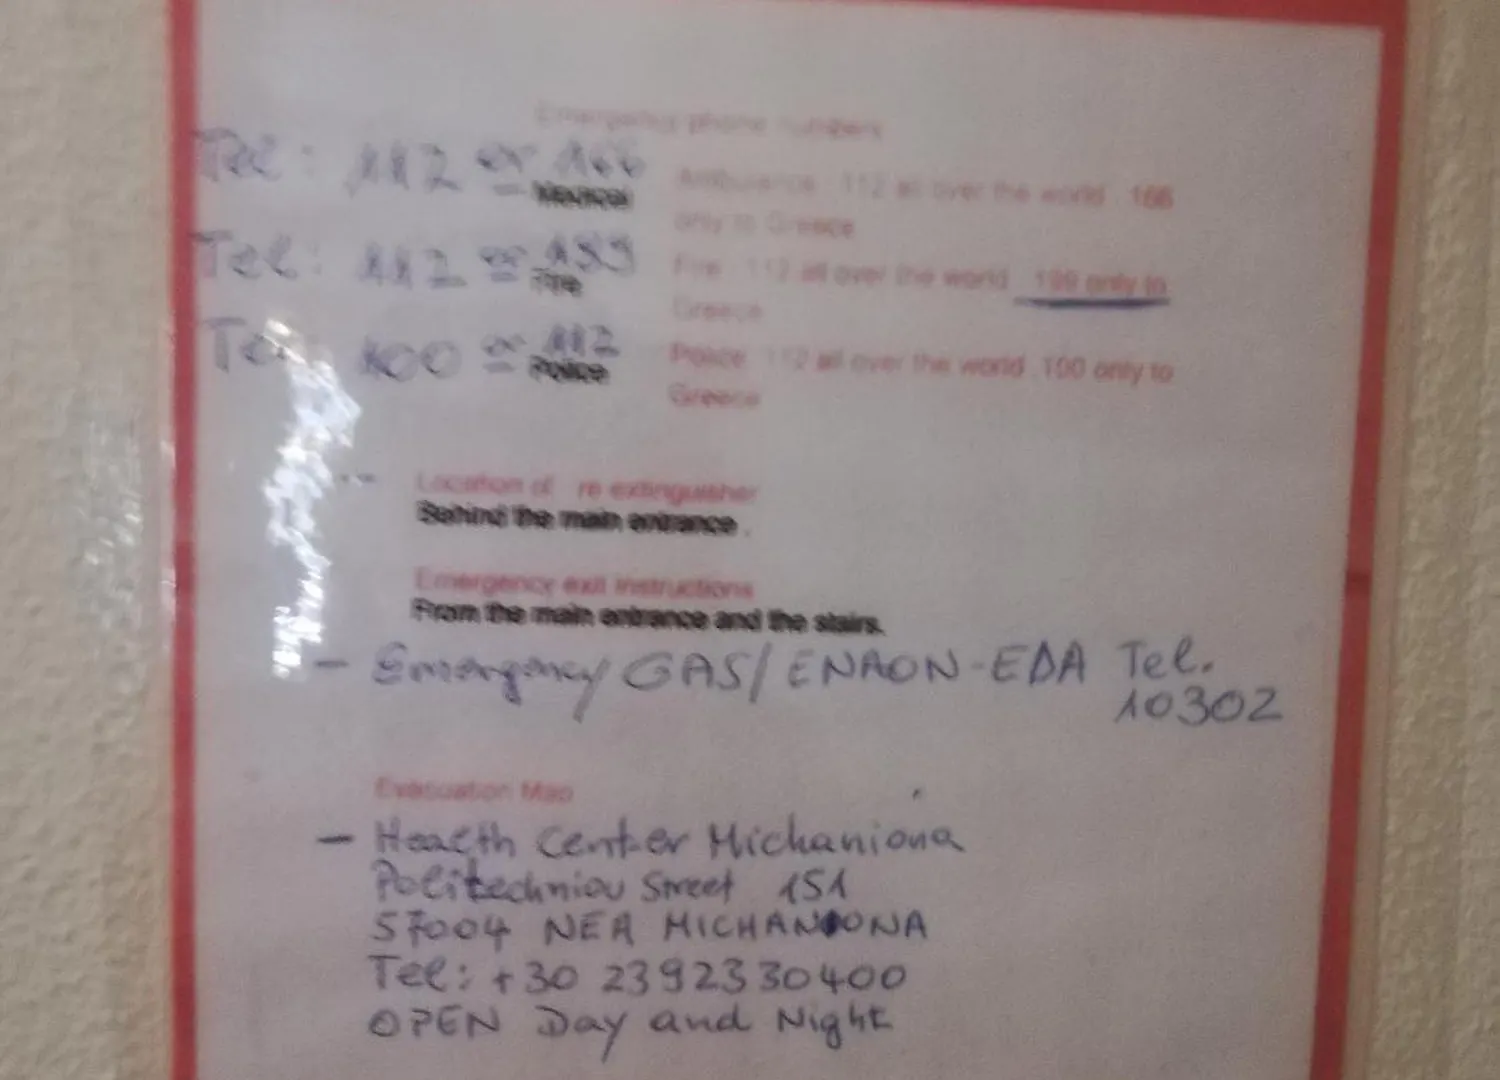 Emergency phone numbers
Tel: 112 or 166
Medical
Ambulance : 112 all over the world . 166
only to Greece
Tel: 112 or 199
Fire
Fire : 112 all over the world . 199 only to
Greece
Tel: 100 or 112
Police
Police : 112 all over the world . 100 only to
Greece
Location of re extinguisher
Behind the main entrance .
Emergency exit instructions
From the main entrance and the stairs.
- Emergency GAS/ENAON-EDA Tel.
10302
Evacuation Map
- Health Center Michaniona
Politechniou Street 151
57004 NEA MICHANIONA
Tel: +30 2392330400
OPEN Day and Night